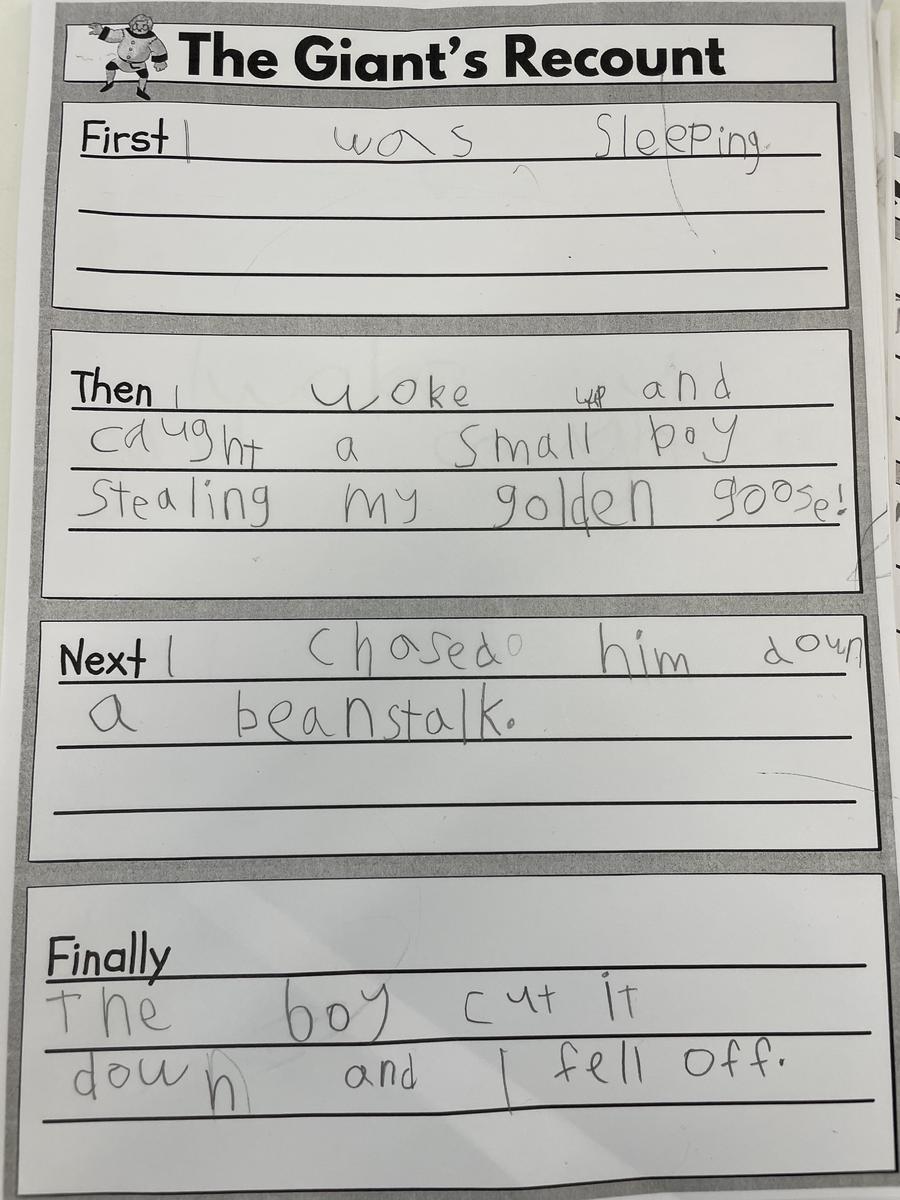 The Giant's Recount
First I was Sleeping.
Then I woke up and
caught a small boy
Stealing my golden goose!
Next I chased him down
a beanstalk.
Finally
The boy cut it
down and I fell off.